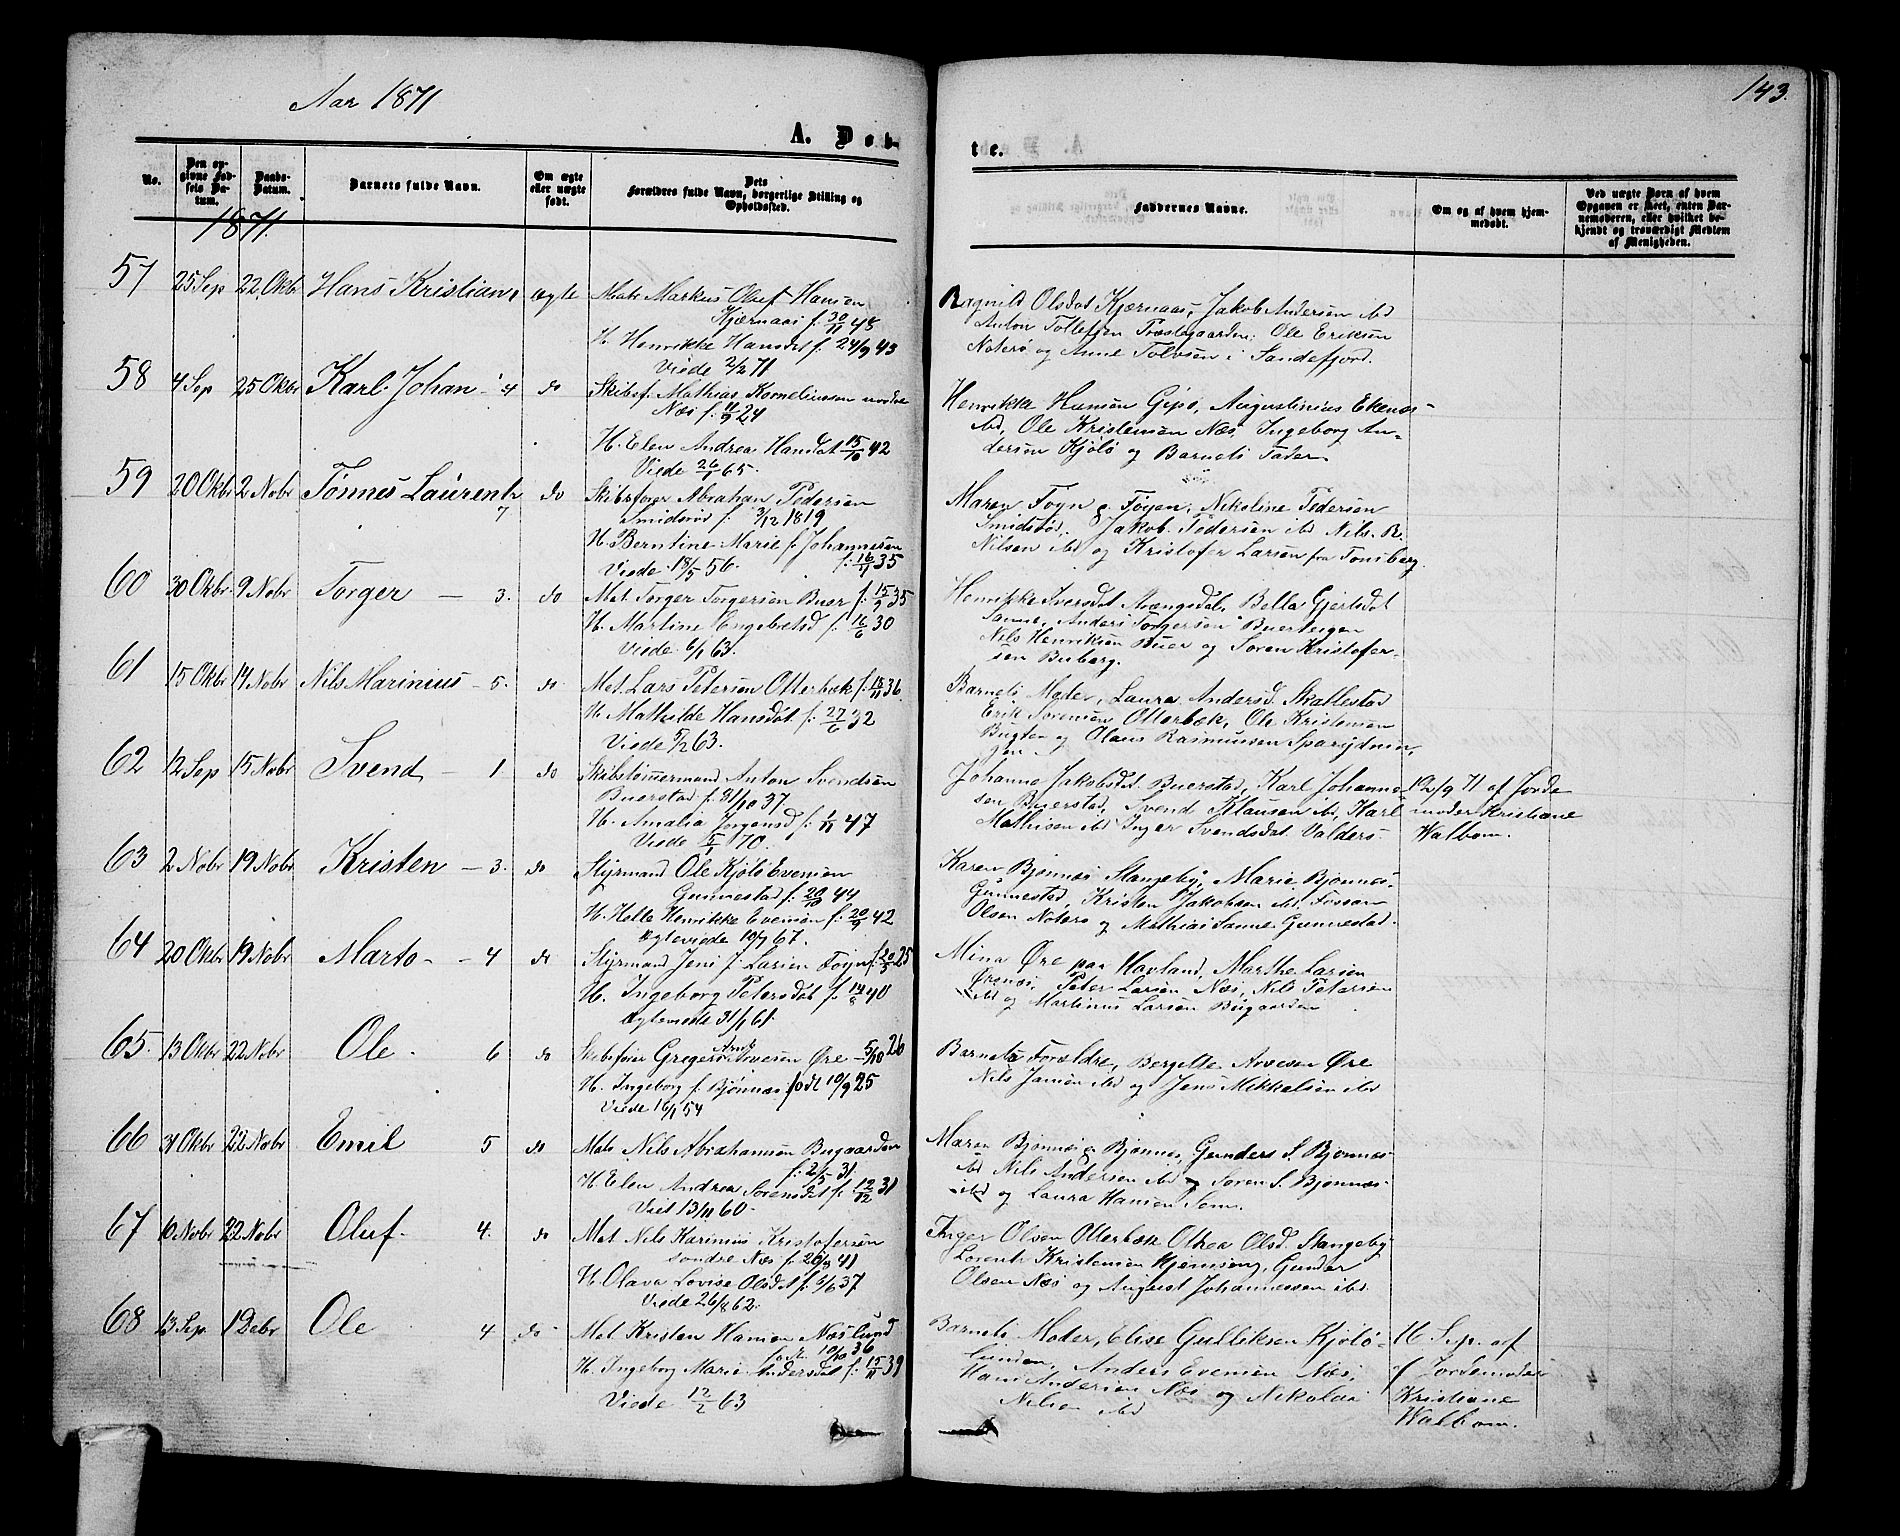 Aar 1871
143.
A. Døb-
te.
No.
Den op-
givne Fød-
sels Da-
tum.
Daabs-
Datum.
Barnets fulde Navn.
Om ægte
eller uægte
født.
Dets
Forældres fulde Navn, borgerlige Stilling og
Opholdssted.
Faddernes Navne.
Om og af hvem hjem-
medøbt.
Ved uægte Barn af hvem
Opgaven er skeet, enten Bar-
nemoderen, eller hvilket be-
kjendt og troværdigt Medlem
af Menigheden.
1871.
57 25 Sep 22 Okbr Hans Kristian 1 ægte Matr Markus Oluf Hansen
Kjærnaas f. 30/11 45
H. Henrikke Hansdat f. 24/9 43
Viede 2/2 71
Ragnild Olsdat Kjærnaas, Jakob Andersen ibd
Anton Tollefsen Præstegaarden, Ole Eriksen
Noterø og Anne Tolvsen i Sandefjord.
58 4 Sep 25 Okbr Karl Johan - 4 do Skibsf. Mathias Korneliussen nordre
Næs f. 11/9 24
H. Elen Andrea Hansdat 15/10 42
Viede 26/1 65.
Henrikke Hansen Gipø, Augustinius Ekenæs
ibd, Ole Kristensen Næs, Ingeborg An-
dersen Kjøløe og Barnets Fader.
59 20 Okbr 2 Nobr Tønnes Laurentz 7 do Skibsfører Abraham Pedersen
Smidsrød f. 3/12 1819
H. Berntine Marie f. Johannesen
Viede 18/5 56. f. 16/1 35
Maren Foyn f. Foyen, Nikoline Pedersen
Smidsrød, Jakob Pedersen ibd Nils B.
Nilsen ibd og Kristofer Larsen fra Tønsberg
60 30 Okbr 9 Nobr Torger - 3. do Mat. Torger Torgersen Buer f. 15/9 35
H. Martine Engebretsd f. 16/6 30
Viede 6/1 63.
Henrikke Iversdat Arøngsdal, Bella Gjertsdat
Sanne, Anders Torgersen Buerteigen
Nils Henriksen Buer og Søren Kristofer-
sen Buberg.
61 15 Okbr 14 Nobr Nils Marinius - 5. do Mat. Lars Petersen Otterbæk f. 15/11 36
H. Mathilde Hansdat f. 27/6 32
Viede 5/2 63.
Barnets Moder, Laura Andersd. Skallestad
Erik Sørensen Otterbæk, Ole Kristensen
Bugten og Olaus Rasmussen
62 12 Sep 15 Nobr Svend - 1 do Skibstømmermand Anton Svendsen
Buerstad f. 31/10 37
H. Amalia Jørgensd f. 1/11 47
Viede 70.
Johanne Jakobsdt. Buerstad, Karl Johanne-
sen Buerstad, Svend Klausen ibd, Karl
Mathisen ibd Inger Svendsdat Valders-
12/9 71 af Jorde
moder Kristiane
Walbom.
63 2 Nobr 19 Nobr Kristen - 3. do Styrmand Ole Kjølø Evensen
Gunnestad f. 20/10 44
H. Helle Henrikke Evensen f. 20/9 42
Ægteviede 10/9 67.
Karen Bjønnes Stangeby, Marie Bjønnes-
Gunnestad, Kristen Jakobsen ibd.
Olsen Noterø og Mathias Sanne Gunnestad.
64 20 Okbr 19 Nobr Marto - 4 do Styrmand Jens J. Larsen Foyn f. 20/5 25
H. Ingeborg Petersdat f. 14/8 40
Ægteviede 31/1 61.
Mina Øre paa Havland, Marthe Larsen
Ørsnæs, Peter Larsen Næs, Nils Petersen
ibd og Martinus Larsen Bugaarden
65. 13 Okbr 22 Nobr Ole. 6 do Skibsfører Gregers Arnt Iversen Øre 5/10 26
H. Ingeborg f. Bjønnæs født 10/9 25
Viede 16/1 54
Barnets Forældre, Bergitte Arvesen Øre
Nils Jansen ibd og Jens Mikkelsen ibd
66 31 Okbr 22 Nobr Emil 5 do Mats Nils Abrahamsen Bugaarden
f. 2/5 31.
H. Elen Andrea Sørensdat f. 12/12 31
Viet 13/11 60.
Maren Bjønnes f. Bjønnes, Gunders S. Bjønnes-
ibd Nils Andersen ibd Søren S. Bjønnes-
ibd og Laura Hansen Sem.
67 10 Nobr 22 Nobr Oluf. 4. do Mat Nils Karinius Kristofersen
søndre Næs f. 20/9 41
H. Olava Lovise Olsdat f. 5/6 37
Viede 26/8 62.
Inger Olsen Otterbæk Othea Olsd. Stangeby
Lorents Kristensen Hjemseng, Gunder
Olsen Næs og August Johannessen ibd.
68 13 Sep. 1 Debr Ole 4 do Mat Kristen Hansen Næslund
født 10/10 36
H. Ingeborg Marie Andersdat f. 15/11 39
Viede 12/2 63
Barnets Moder, Elise Gulliksen Kjølø-
lunden, Anders Evensen Næs,
Hans Andersen Næs og Nikolai
Nilsen ibd
16 Sep. af
Jordemoder
Kristiane
Walbom.